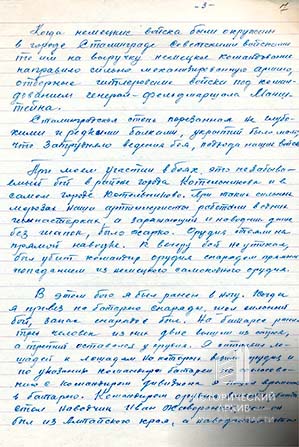 -3-
7
Когда немецкие войска были окружены
в городе Сталинграде Советскими войсками
то им на выручку, немецкое командование
направило сильно механизированную армию,
отборные гитлеровские войска под коман-
дованием генерал-фельдмаршала Манш-
тейна.
Сталинградская степь порезанная не глубо-
кими и редкими балками, укрытий было мало
что затрудняло ведения боя, подхода наших войск
При моем участии в боях, это незабыва-
емый бой в районе города Котельниково, и в
самом городе Котельниково. При таких сильных
морозах наши артиллеристы работали в одних
гимнастерках, а заряжающий и наводчик даже
без шапок, было жарко. Орудия стояли на
прямой наводке. К вечеру бой не утихал,
был убит командир орудия снарядом прямым
попаданием из немецкого самоходного орудия.
В этом бою я был ранен в ногу. Когда
я привез на батарею снаряды, шел сильный
бой, запас снарядов был. На батарее ранило
три человек из них двое вышли из строя,
а третий остался у орудия. Я отпустил ло-
шадей к лошадям на которых возят орудия и
по указанию командира батареи
с командиром дивизиона. Я
в батарею. Командиром орудия
стал наводчик Иван
был из Алтайского края, а наводчиком
ИСТОРИЧЕСКИЙ
АРХИВ